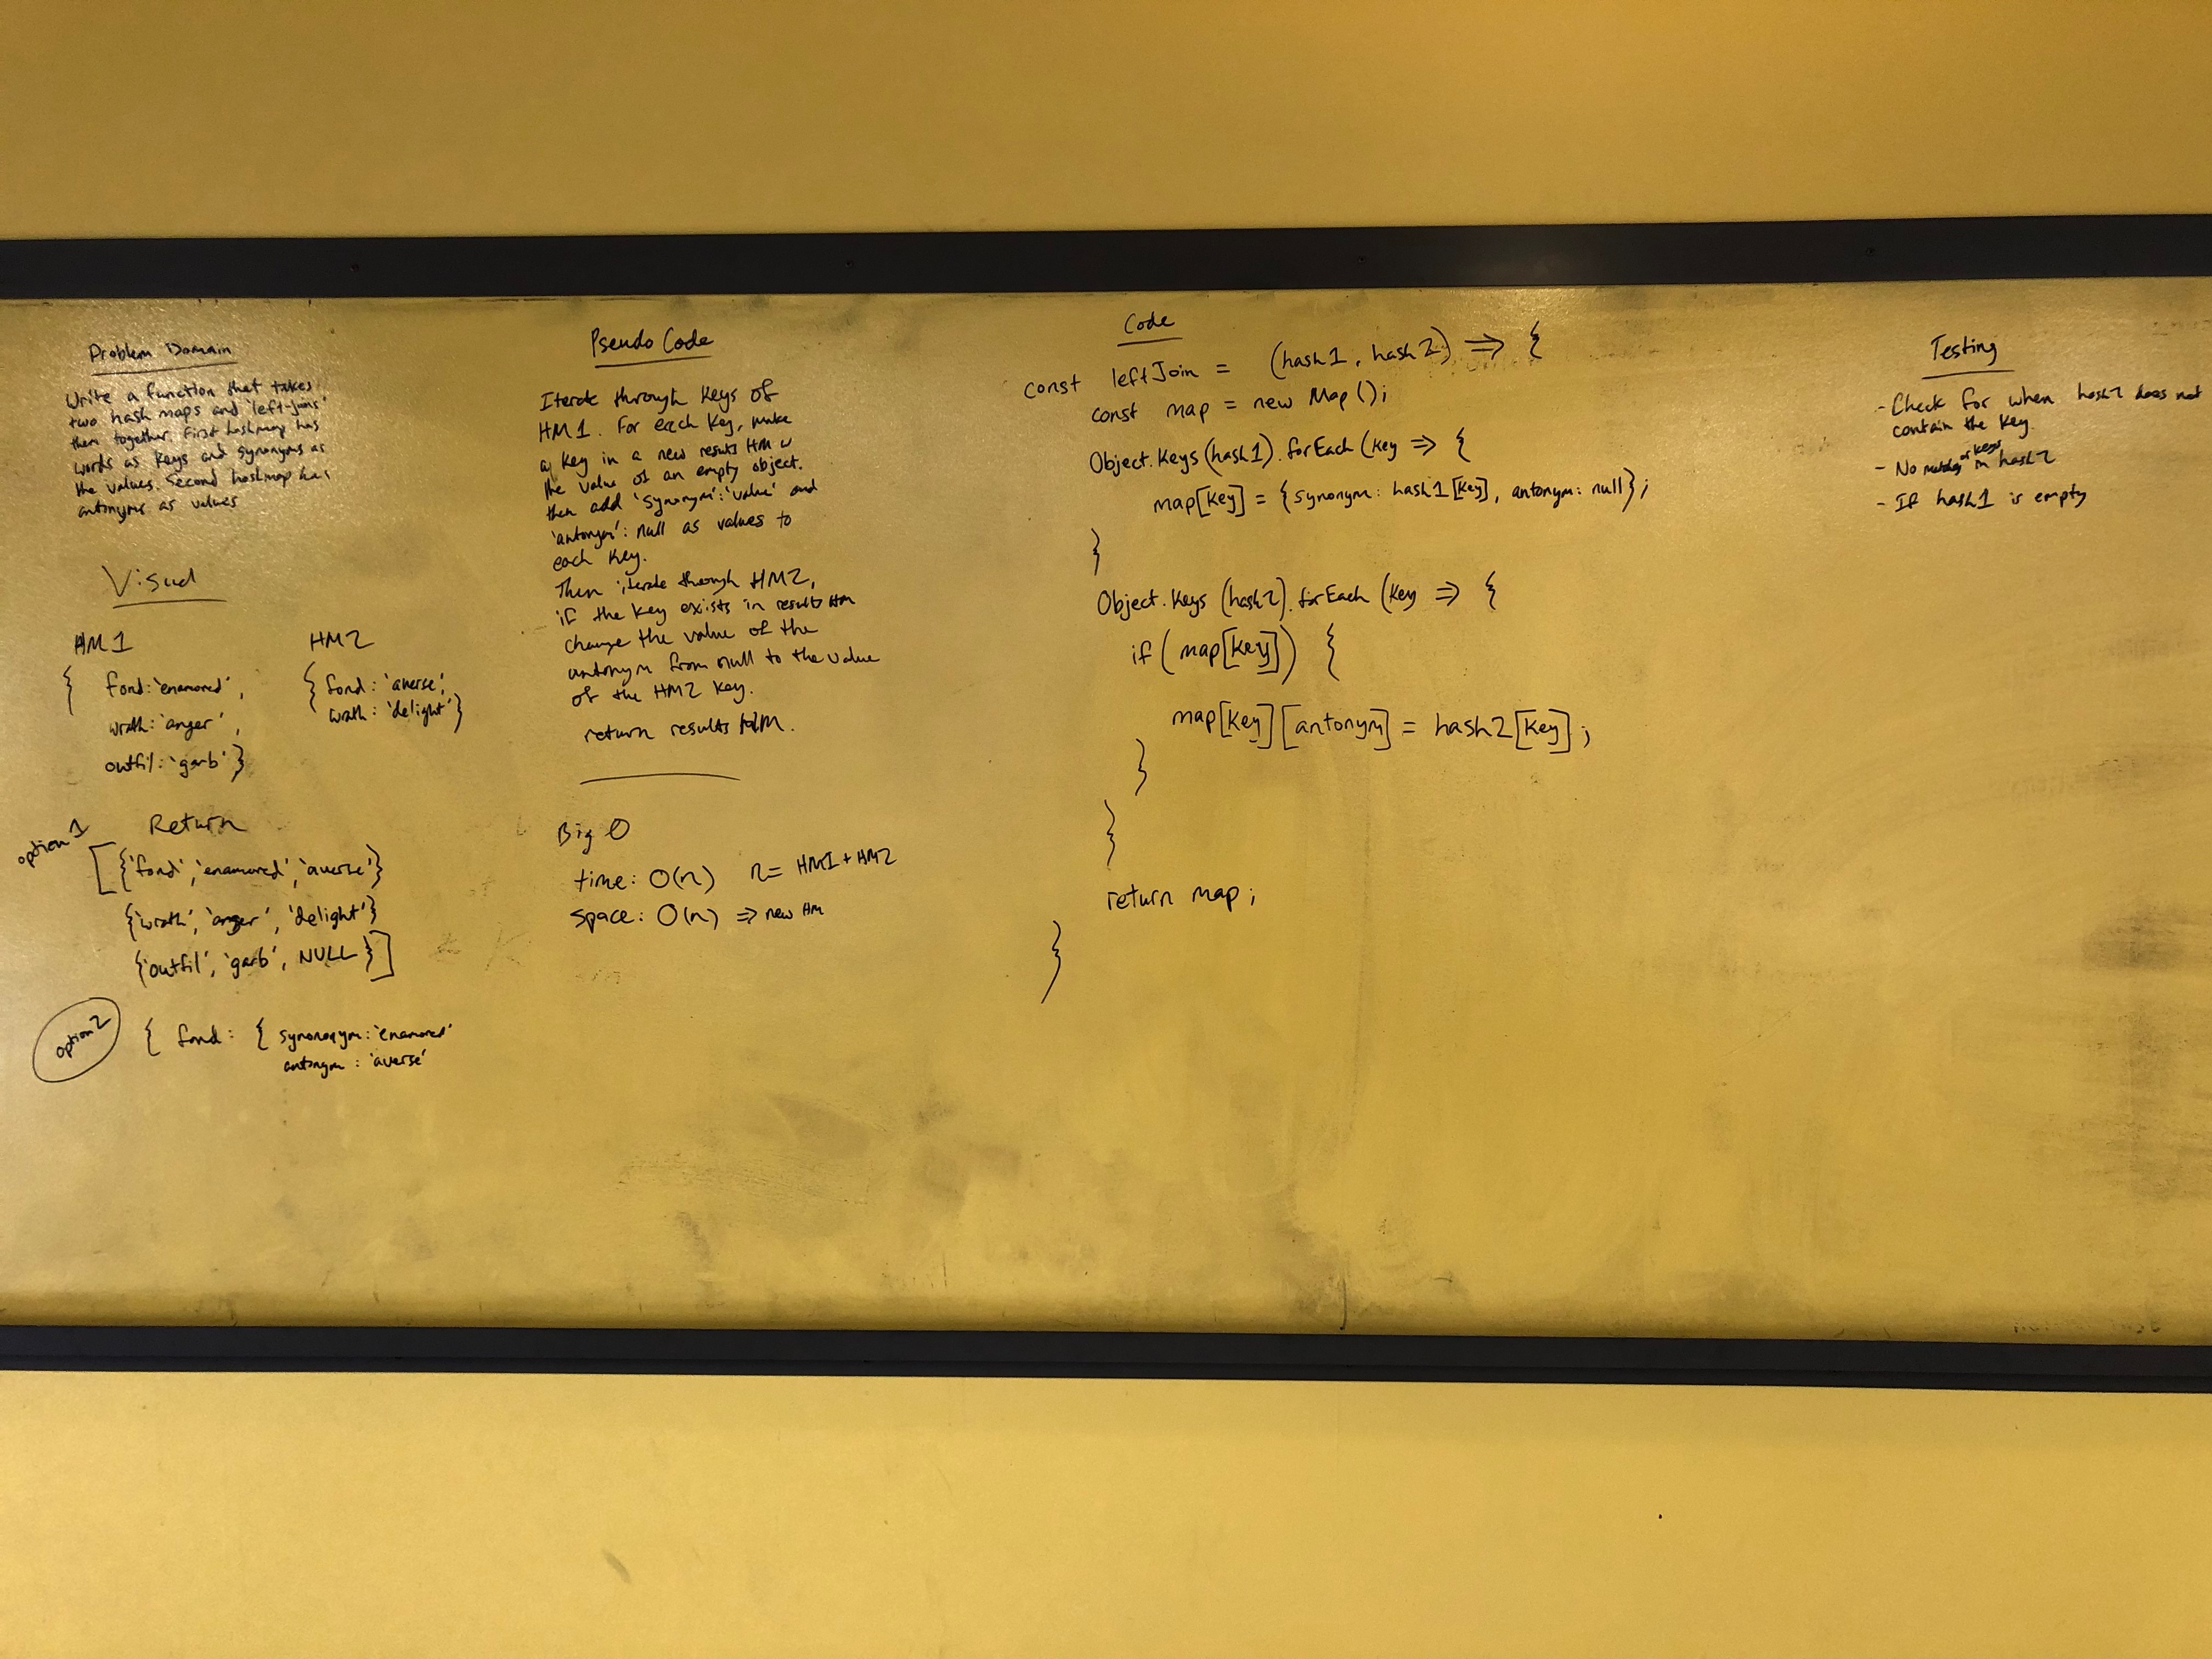 Problem Domain
Write a function that takes
two hash maps and 'left-joins'
them together. First hashmap has
words as keys and synonyms as
the values. Second hashmap has
antonyms as values
Visual
HM1
{ fond: 'enamored',
wrath: 'anger',
outfit: 'garb' }
HM2
{ fond: 'averse',
wrath: 'delight' }
option 1
Return
[ {'fond', 'enamored', 'averse'}
{'wrath', 'anger', 'delight'}
{'outfit', 'garb', NULL } ]
option 2
{ fond: { synonoym: 'enamored'
antonym : 'averse'
Pseudo Code
Iterate through Keys of
HM1. For each Key, make
a Key in a new results HM w
the value of an empty object.
then add 'synonym': 'value' and
'antonym': null as values to
each Key.
Then iterate through HM2,
if the Key exists in results HM
change the value of the
antonym from null to the value
of the HM2 Key.
return results HM.
Big O
time: O(n) n = HM1 + HM2
space: O(n) => new HM
Code
const leftJoin = (hash1, hash2) => {
const map = new Map();
Object.Keys(hash1).forEach(Key => {
map[Key] = {synonym: hash1[Key], antonym: null};
}
Object.Keys(hash2).forEach(Key => {
if (map[Key]) {
map[Key][antonym] = hash2[Key];
}
}
return map;
}
Testing
- Check for when hash2 does not
contain the Key
- No of Keys in hash2
- If hash1 is empty